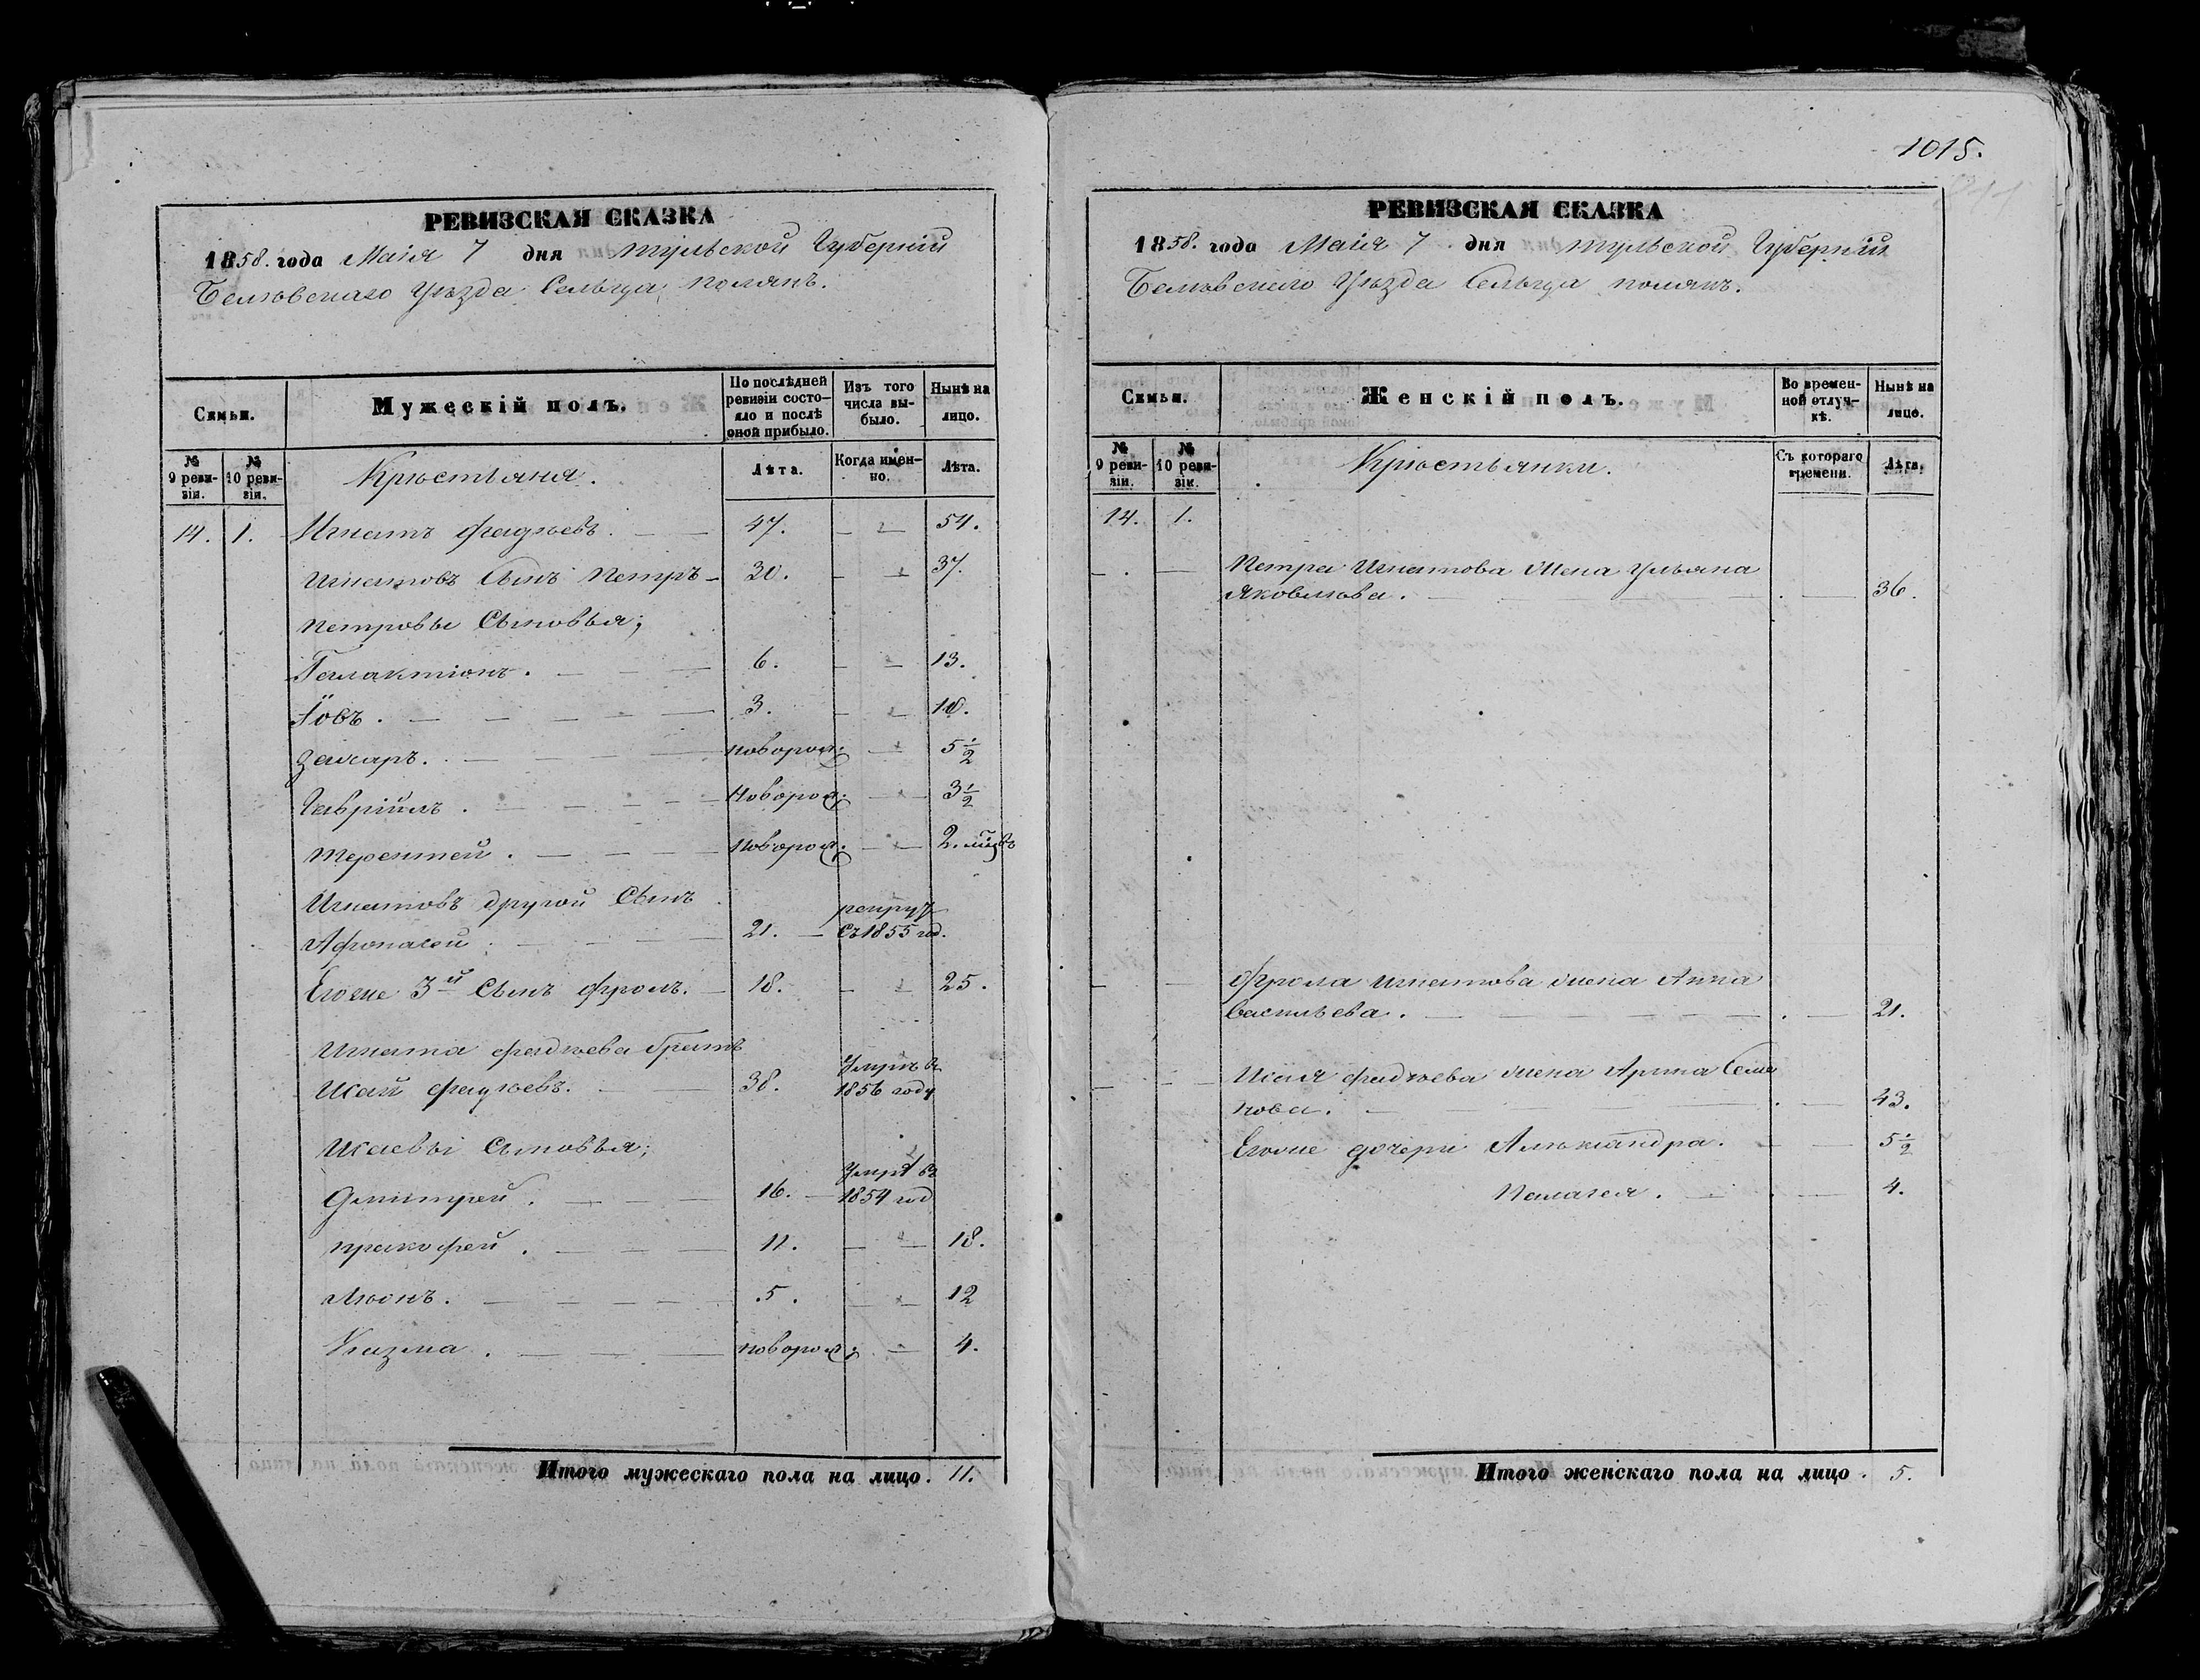 1015.
РЕВИЗСКАЯ СКАЗКА
1858. года Маія 7 дня Тульской Губерніи
Белевскаго Уѣзда Сельца полянъ.
Семьи.
Мужескій полъ.
По послѣдней ревизіи состояло и послѣ оной прибыло.
Изъ того числа выбыло.
Нынѣ на лицо.
№ 9 ревизіи.
№ 10 ревизіи.
Крестьяня.
Лѣта.
Когда именно.
Лѣта.
14. 1. Игнатъ Фадѣевъ. 47. 54.
Игнатовъ Сынъ Петръ 30. 37.
Петровы Сыновья;
Галактіонъ. 6. 13.
Іовъ. 3. 10.
Захаръ. новорож: 5 1/2
Гавріилъ. Новорож: 3 1/2
Терентей. новорож: 2.
Игнатовъ другой Сынъ
Афонасей 21. рекрут
Съ 1855 год.
Егоже 3й Сынъ Фролъ. 18. 25.
Игната Фадѣева братъ
Исай Фадѣевъ. 38. Умръ въ
1856 году
Исаевы Сыновья;
Дмитрей. 16. Умръ въ
1854 год
Пракофей. 11. 18.
Лѣонъ. 5. 12
Кузма. новорож: 4.
Итого мужескаго пола на лицо. 11.
РЕВИЗСКАЯ СКАЗКА
1858. года Маія 7 дня Тульской Губерніи
Белевскаго Уѣзда Сельца полянъ.
Семьи.
Женскій полъ.
Во временной отлучкѣ.
Нынѣ на лицо.
№ 9 ревизіи.
№ 10 ревизіи.
Крестьянки.
Съ котораго времени.
Лѣта.
14. 1.
Петра Игнатова Жена Ульяна
Яковлева. 36.
Фрола Игнатова жена Анна
Васильева. 21.
Исая Фадѣева жена Арина Семе
нова. 43.
Егоже дочери Алѣксандра. 5 1/2
Пелагея. 4.
Итого женскаго пола на лицо. 5.